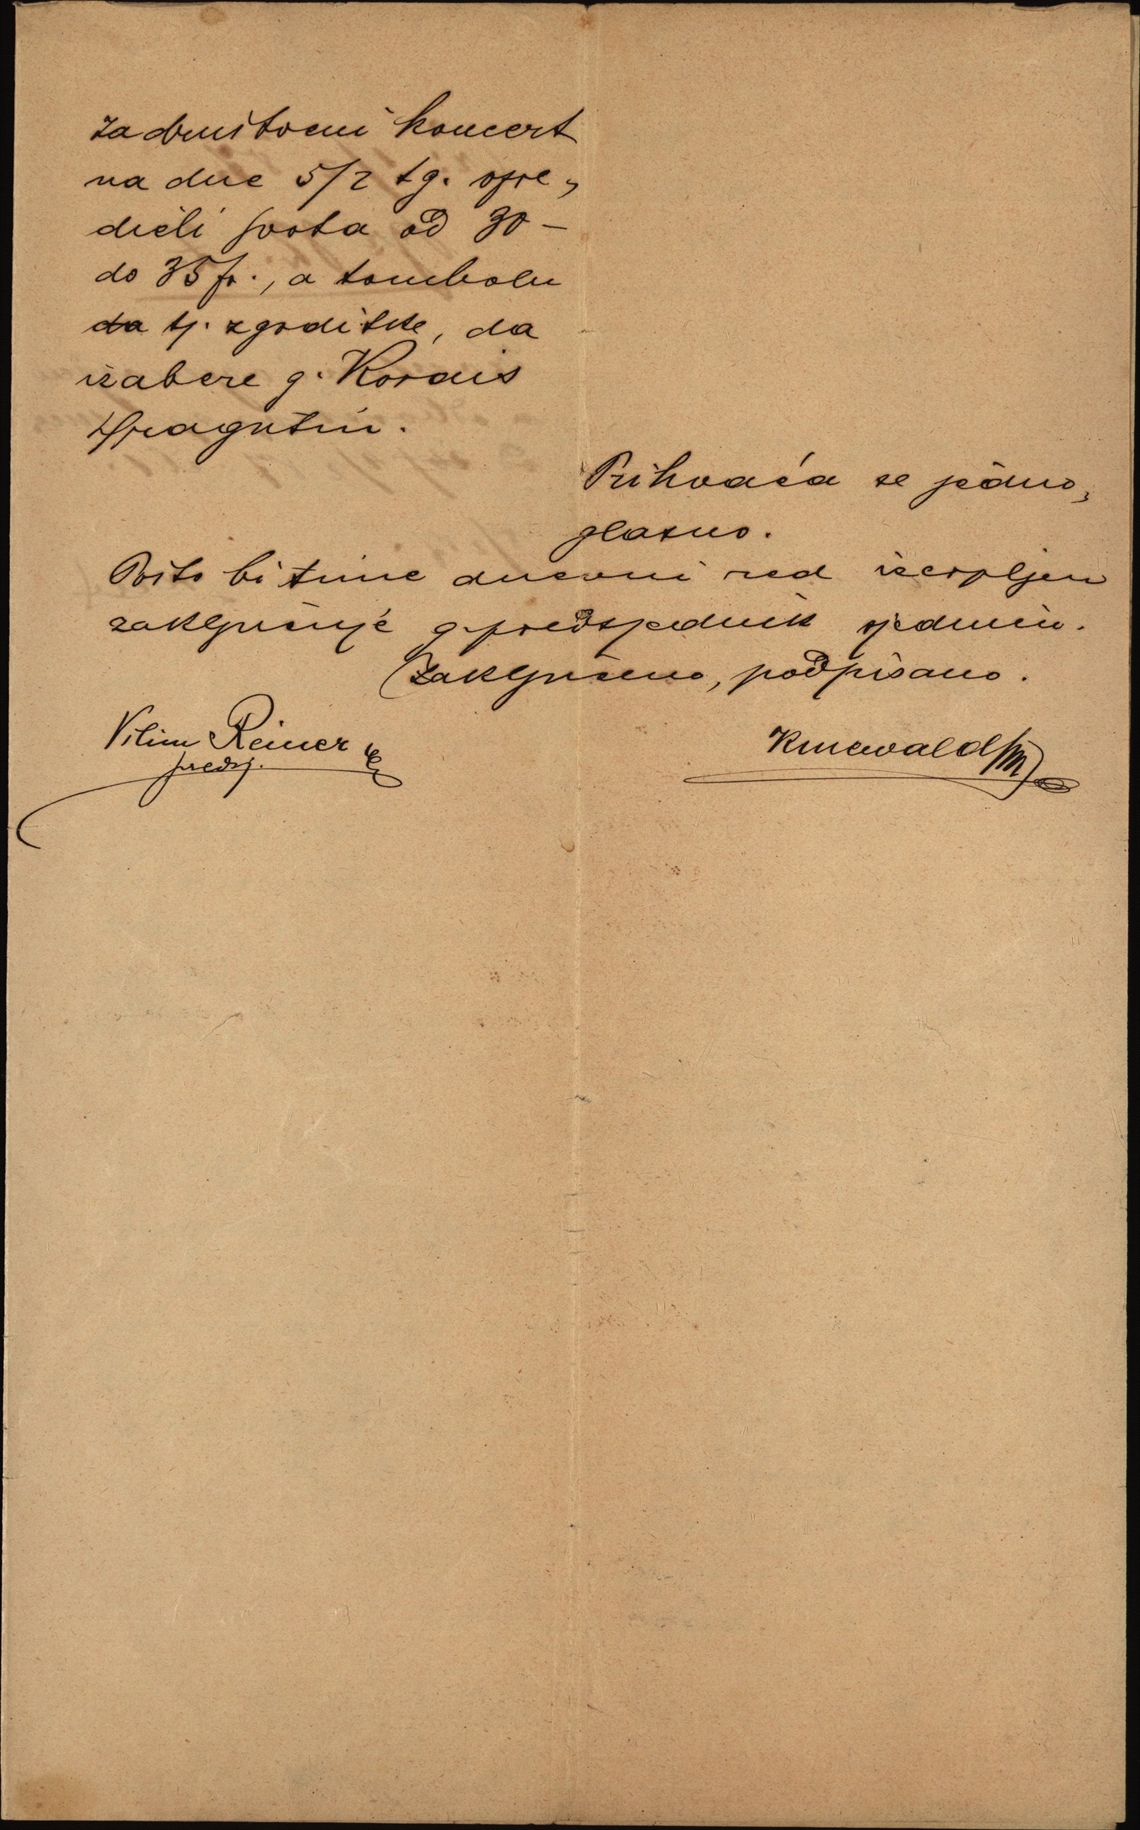 za društveni koncert
na dne 5/2 tg. opre-
dieli svota od 30 -
do 35 fr., a tombolu
da tj. zgoditke, da
izabere g. Korais
Dragutin.
Prihvaća se jedno-
glasno.
Pošto bi time dnevni red izcrpljen
zaključuje g. predsjednik sjednicu.
Zaključeno, podpisano.
Vilim Reiner
predsj.